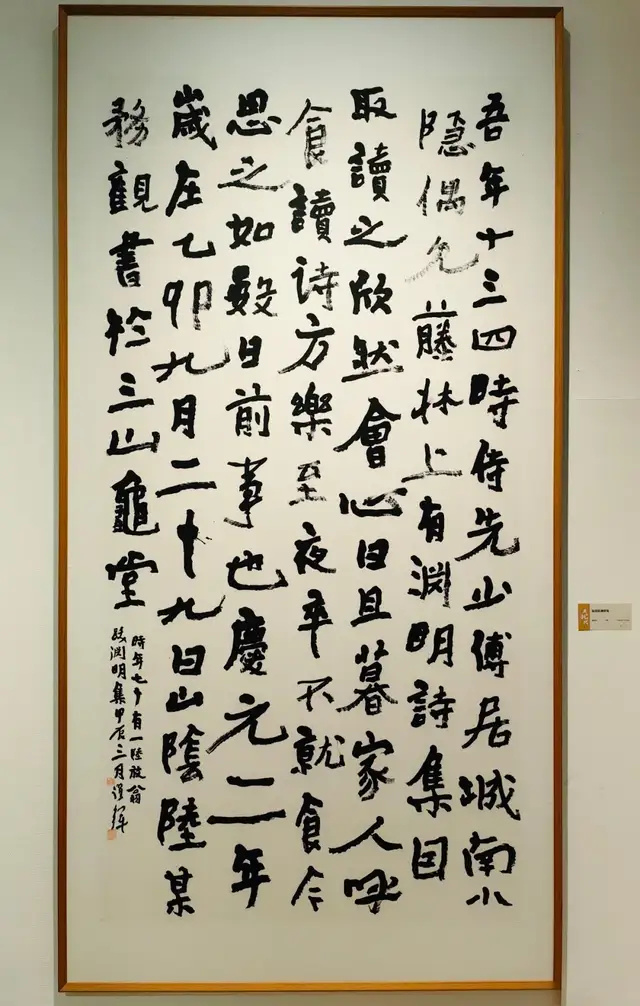 吾年十三四時侍先少傅居城南小
隐偶見藤牀上有渊明詩集因
取讀之欣然會心日且暮家人呼
食讀诗方樂至夜卒不就食今
思之如數日前事也慶元二年
歲在乙卯九月二十九日山陰陸某
務觀書於三山龜堂
時年七十有一陸放翁
跋渊明集甲辰三月